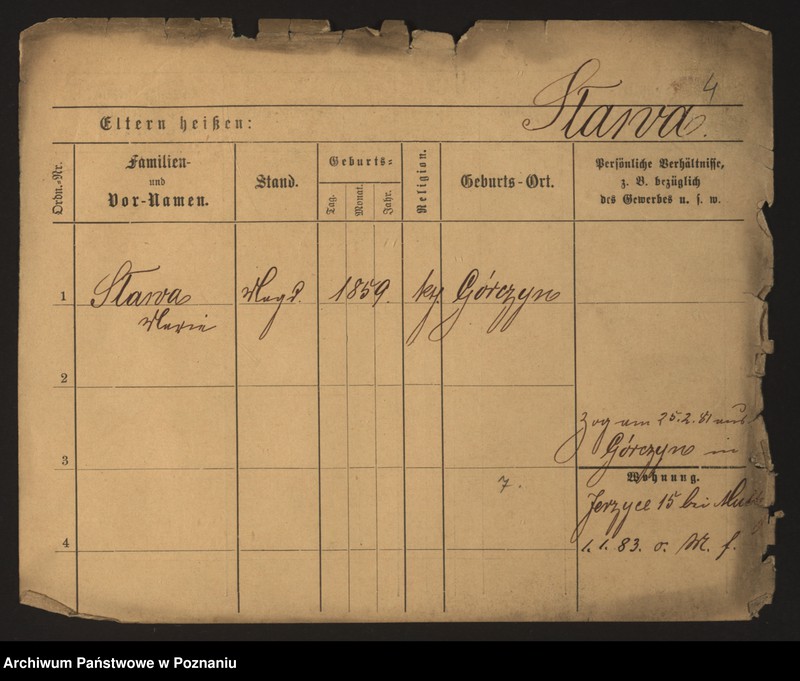 4
Eltern heißen:
Stawa.
Ordn.-Nr.
Familien-
und
Vor-Namen.
Stand.
Geburts-
Tag.
Monat.
Jahr.
Religion.
Geburts-Ort.
Persönliche Verhältnisse,
z. B. bezüglich
des Gewerbes u. s. w.
1 Stawa Magd. 1859. kþ. Górczyn
Marie
2
zog am 25.2.81 aus
Górczyn in
3
Wohnung.
7.
Jerzyce 15 bei
4
1.1.83. o. M. f.
Archiwum Państwowe w Poznaniu